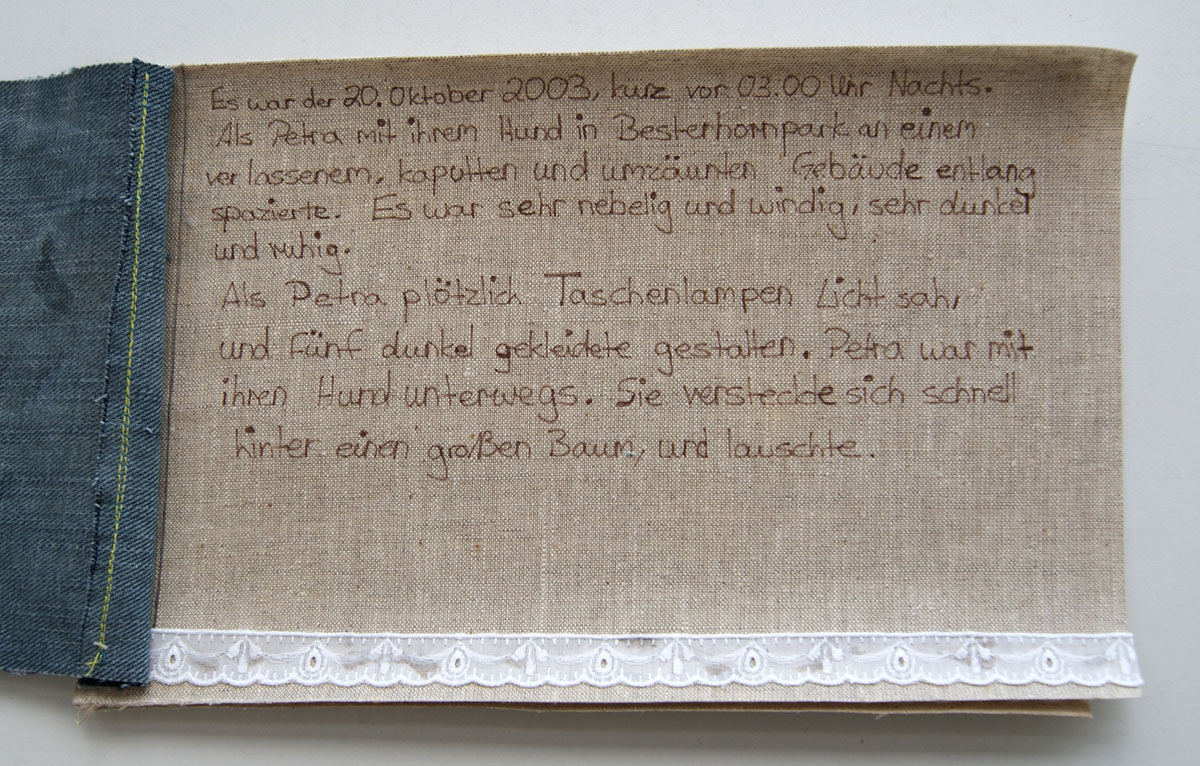 Es war der 20. Oktober 2003, kurz vor 03.00 Uhr Nachts.
Als Petra mit ihrem Hund in Besterhornpark an einem
verlassenem, kaputten und umzäunten Gebäude entlang
spazierte. Es war sehr nebelig und windig, sehr dunkel
und ruhig.
Als Petra plötzlich Taschenlampen Licht sah,
und fünf dunkel gekleidete gestalten. Petra war mit
ihren Hund unterwegs. Sie versteckde sich schnell
hinter einen großen Baum, und lauschte.